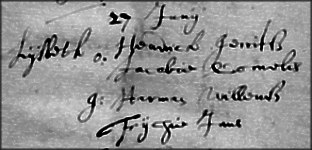 27 Junij
Lijsbeth o. Hendrick Gerrits
Jacobie Cornelis
g. Harmen Willems
Trijntie Jans